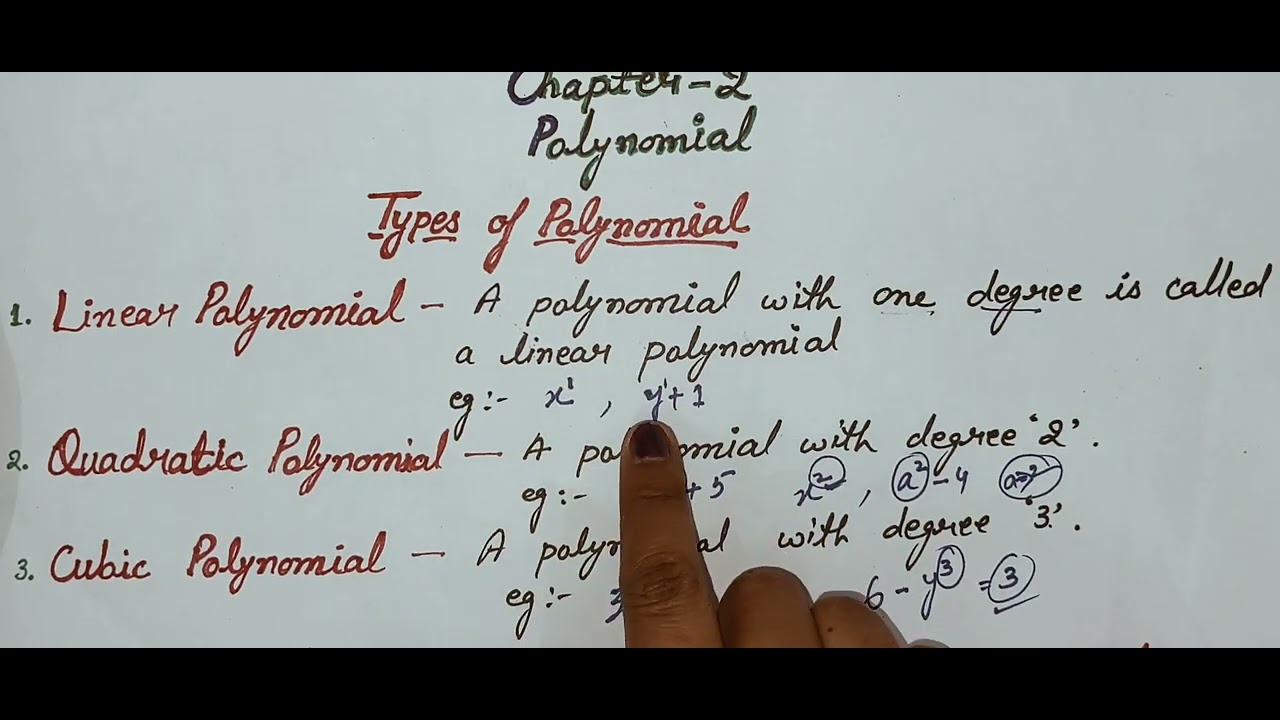 Chapter-2
Polynomial
Types of Polynomial
1. Linear Polynomial – A polynomial with one degree is called
a linear polynomial
eg:- x¹ , y¹+1
2. Quadratic Polynomial – A with degree '2'.
eg:- +5 x² , a²-4
3. Cubic Polynomial – A with degree '3'.
eg:- 6-y³ =3